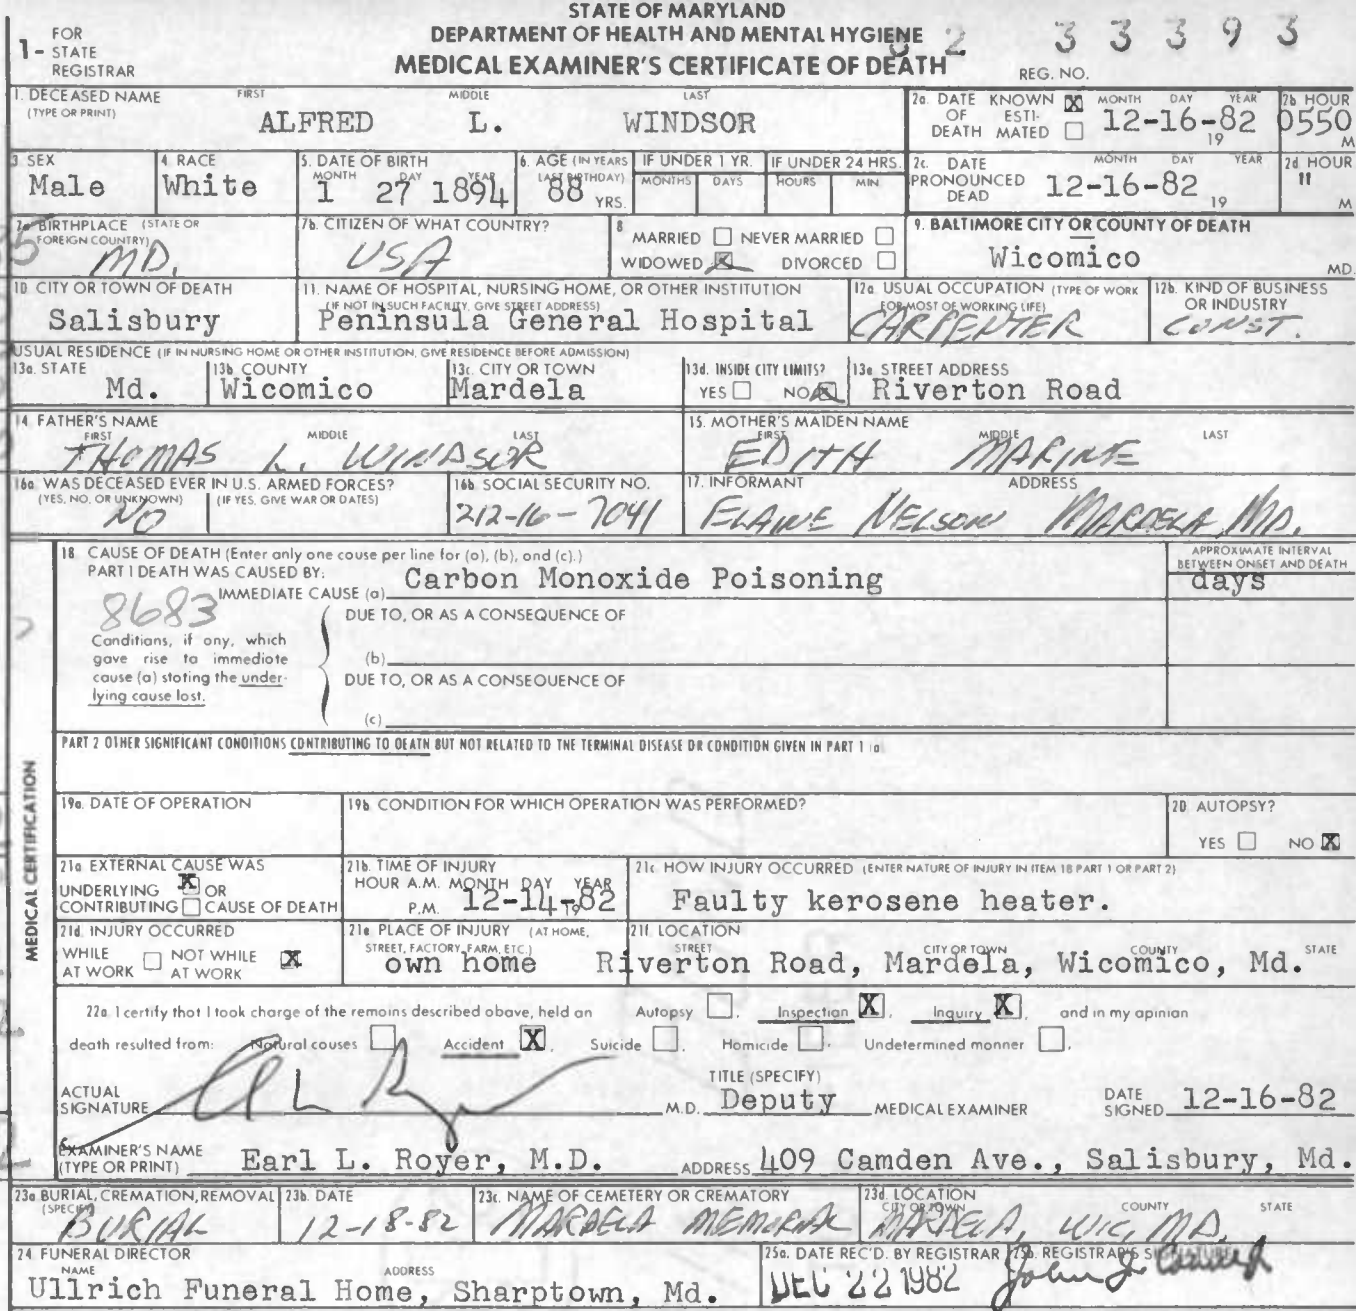 STATE OF MARYLAND
DEPARTMENT OF HEALTH AND MENTAL HYGIENE
MEDICAL EXAMINER'S CERTIFICATE OF DEATH
1- FOR STATE REGISTRAR
82 33393
REG. NO.
1. DECEASED NAME (TYPE OR PRINT) FIRST MIDDLE LAST
ALFRED L. WINDSOR
2a. DATE OF DEATH KNOWN X ESTIMATED MONTH DAY YEAR
12-16-82 19
2b HOUR
0550 M
3. SEX
Male
4. RACE
White
5. DATE OF BIRTH MONTH DAY YEAR
1 27 1894
6. AGE (IN YEARS LAST BIRTHDAY)
88 YRS.
IF UNDER 1 YR. MONTHS DAYS
IF UNDER 24 HRS. HOURS MIN
2c. DATE PRONOUNCED DEAD MONTH DAY YEAR
12-16-82 19
2d HOUR
" M
7a BIRTHPLACE (STATE OR FOREIGN COUNTRY)
MD.
7b. CITIZEN OF WHAT COUNTRY?
USA
8 MARRIED NEVER MARRIED
WIDOWED X DIVORCED
9. BALTIMORE CITY OR COUNTY OF DEATH
Wicomico MD.
10 CITY OR TOWN OF DEATH
Salisbury
11. NAME OF HOSPITAL, NURSING HOME, OR OTHER INSTITUTION
(IF NOT IN SUCH FACILITY, GIVE STREET ADDRESS)
Peninsula General Hospital
12a. USUAL OCCUPATION (TYPE OF WORK FOR MOST OF WORKING LIFE)
CARPENTER
12b. KIND OF BUSINESS OR INDUSTRY
CONST.
USUAL RESIDENCE (IF IN NURSING HOME OR OTHER INSTITUTION, GIVE RESIDENCE BEFORE ADMISSION)
13a. STATE
Md.
13b. COUNTY
Wicomico
13c. CITY OR TOWN
Mardela
13d. INSIDE CITY LIMITS?
YES NO X
13e STREET ADDRESS
Riverton Road
14. FATHER'S NAME FIRST MIDDLE LAST
THOMAS L. WINDSOR
15. MOTHER'S MAIDEN NAME FIRST MIDDLE LAST
EDITH MARINE
16a WAS DECEASED EVER IN U.S. ARMED FORCES?
(YES, NO, OR UNKNOWN) (IF YES, GIVE WAR OR DATES)
NO
16b SOCIAL SECURITY NO.
212-16-7041
17. INFORMANT ADDRESS
ELAINE NELSON MARDELA, MD.
MEDICAL CERTIFICATION
18 CAUSE OF DEATH (Enter only one cause per line for (a), (b), and (c).)
PART I DEATH WAS CAUSED BY:
IMMEDIATE CAUSE (a) Carbon Monoxide Poisoning
APPROXIMATE INTERVAL BETWEEN ONSET AND DEATH
days
8683
Conditions, if any, which gave rise to immediate cause (a) stating the underlying cause last.
DUE TO, OR AS A CONSEQUENCE OF
(b)
DUE TO, OR AS A CONSEQUENCE OF
(c)
PART 2 OTHER SIGNIFICANT CONDITIONS CONTRIBUTING TO DEATH BUT NOT RELATED TO THE TERMINAL DISEASE OR CONDITION GIVEN IN PART 1 (a)
19a. DATE OF OPERATION
19b CONDITION FOR WHICH OPERATION WAS PERFORMED?
20 AUTOPSY?
YES NO X
21a EXTERNAL CAUSE WAS
UNDERLYING X OR
CONTRIBUTING CAUSE OF DEATH
21b. TIME OF INJURY
HOUR A.M. MONTH DAY YEAR
P.M. 12-14-82 19
21c HOW INJURY OCCURRED (ENTER NATURE OF INJURY IN ITEM 18 PART 1 OR PART 2)
Faulty kerosene heater.
21d. INJURY OCCURRED
WHILE AT WORK NOT WHILE AT WORK X
21e PLACE OF INJURY (AT HOME, STREET, FACTORY, FARM, ETC.)
own home
21f. LOCATION STREET CITY OR TOWN COUNTY STATE
Riverton Road, Mardela, Wicomico, Md.
22a I certify that I took charge of the remains described above, held an Autopsy , Inspection X, Inquiry X, and in my opinion
death resulted from: Natural causes , Accident X, Suicide , Homicide , Undetermined manner .
ACTUAL SIGNATURE M.D.
TITLE (SPECIFY)
Deputy MEDICAL EXAMINER
DATE SIGNED 12-16-82
EXAMINER'S NAME (TYPE OR PRINT) Earl L. Royer, M.D. ADDRESS 409 Camden Ave., Salisbury, Md.
23a BURIAL, CREMATION, REMOVAL (SPECIFY)
BURIAL
23b. DATE
12-18-82
23c. NAME OF CEMETERY OR CREMATORY
MARDELA MEMORIAL
23d. LOCATION CITY OR TOWN COUNTY STATE
MARDELA, WIC, MD.
24 FUNERAL DIRECTOR NAME ADDRESS
Ullrich Funeral Home, Sharptown, Md.
25a. DATE REC'D. BY REGISTRAR
DEC 22 1982
25b. REGISTRAR'S SIGNATURE
John J.